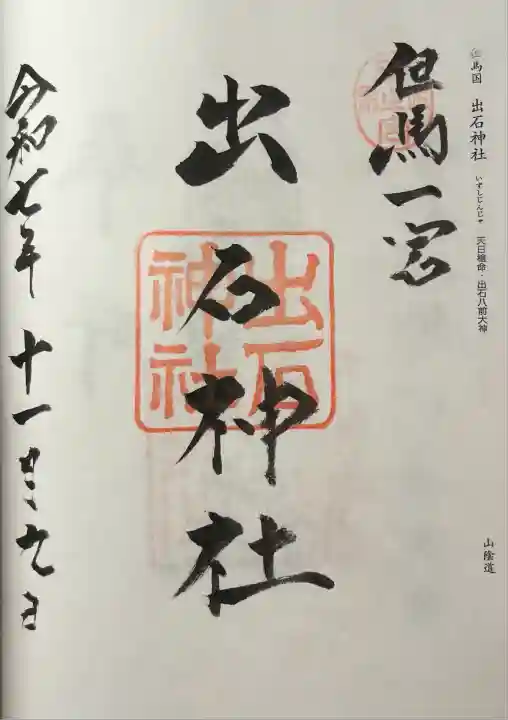 但馬国 出石神社 天日槍命・出石八前大神
いずしじんじゃ
山陰道
但馬一宮
出石神社
出石神社
令和七年 十一月九日